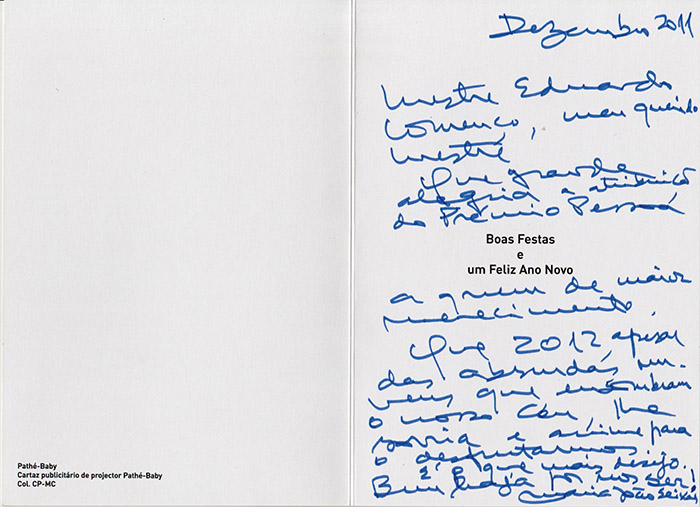 Pathé-Baby
Cartaz publicitário de projector Pathé-Baby
Col. CP-MC
Dezembro 2011
Mestre Eduardo
Lourenço, meu querido
Mestre
Que grande
alegria a atribuição
do Prémio Pessoa
Boas Festas
e
um Feliz Ano Novo
a quem de maior
merecimento.
Que 2012 apesar
das absurdas nu-
vens que ensombram
o nosso céu, lhe
sorria e anime para
o desfrutarmos
É o que mais desejo.
Bem haja por nos ser!
Maria João Seixas